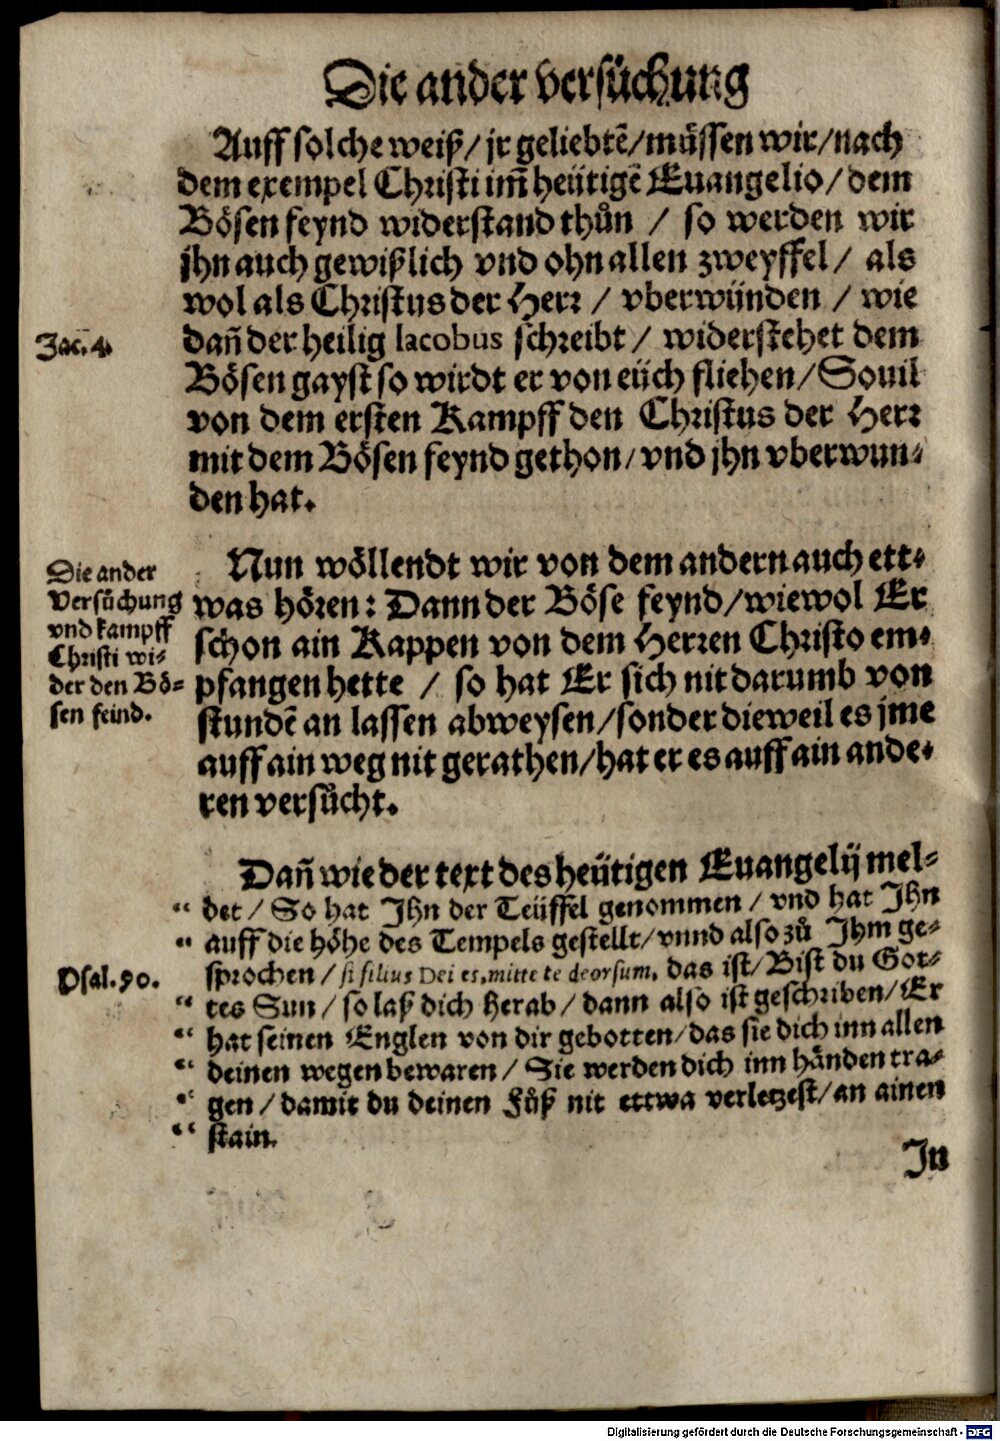 Die ander versůchung
Auff solche weiß/ jr geliebtē/ müssen wir/ nach
dem exempel Christi im̃ heütigē Euangelio/ dem
Bösen feynd widerstand thůn / so werden wir
jhn auch gewißlich vnd ohn allen zweyffel/ als
wol als Christus der Herr / vberwünden / wie
Jac. 4.
dañ der heilig Iacobus schreibt/ widerstehet dem
Bösen gayst so wirdt er von eüch fliehen/ Souil
von dem ersten Kampff den Christus der Herr
mit dem Bösen feynd gethon/ vnd jhn vberwun-
den hat.
Die ander
Versůchung
vnd kampff
Christi wi-
der den Bö-
sen feind.
Nun wöllendt wir von dem andern auch ett-
was hören: Dann der Böse feynd/ wiewol Er
schon ain Kappen von dem Herren Christo em-
pfangen hette / so hat Er sich nit darumb von
stundē an lassen abweysen/ sonder dieweil es jme
auff ain weg nit gerathen/ hat er es auff ain ande-
ren versůcht.
Dañ wie der text des heütigen Euangelij mel-
“ det/ So hat Jhn der Teüffel genommen/ vnd hat Jhn
“ auff die höhe des Tempels gestellt/ vnnd also zů Jhm ge-
Psal. 90.
sprochen/ si filius Dei es, mitte te deorsum, das ist/ Bist du Got-
“ tes Sun/ so laß dich herab/ dann also ist geschriben/ Er
“ hat seinen Englen von dir gebotten/ das sie dich inn allen
“ deinen wegen bewaren/ Sie werden dich inn händen tra-
“ gen/ damit du deinen Fůß nit ettwa verletzest/ an ainen
“ stain.
In
Digitalisierung gefördert durch die Deutsche Forschungsgemeinschaft - DFG